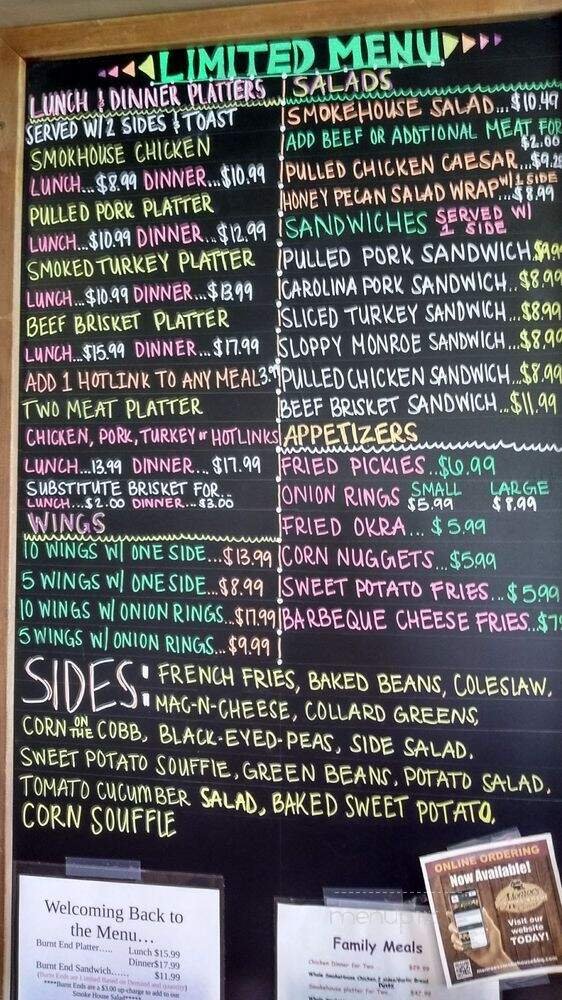 LIMITED MENU
LUNCH & DINNER PLATTERS
SERVED W/ 2 SIDES & TOAST
SMOKHOUSE CHICKEN
LUNCH...$8.99 DINNER...$10.99
PULLED PORK PLATTER
LUNCH...$10.99 DINNER...$12.99
SMOKED TURKEY PLATTER
LUNCH...$10.99 DINNER...$13.99
BEEF BRISKET PLATTER
LUNCH...$15.99 DINNER...$17.99
ADD 1 HOTLINK TO ANY MEAL 3.99
TWO MEAT PLATTER
CHICKEN, PORK, TURKEY or HOTLINKS
LUNCH...13.99 DINNER...$17.99
SUBSTITUTE BRISKET FOR...
LUNCH...$2.00 DINNER...$3.00
WINGS
10 WINGS W/ ONE SIDE...$13.99
5 WINGS W/ ONE SIDE...$8.99
10 WINGS W/ ONION RINGS...$17.99
5 WINGS W/ ONION RINGS...$9.99
SALADS
SMOKEHOUSE SALAD...$10.49
ADD BEEF OR ADDTIONAL MEAT FOR
$2.00
PULLED CHICKEN CAESAR...$9.2
HONEY PECAN SALAD WRAP W/ 1 SIDE
...$8.99
SANDWICHES SERVED W/
1 SIDE
PULLED PORK SANDWICH.$9.9
CAROLINA PORK SANDWICH..$8.99
SLICED TURKEY SANDWICH...$8.99
SLOPPY MONROE SANDWICH...$8.99
PULLED CHICKEN SANDWICH...$8.99
BEEF BRISKET SANDWICH...$11.99
APPETIZERS
FRIED PICKIES..$6.99
ONION RINGS SMALL LARGE
$5.99 $8.99
FRIED OKRA...$5.99
CORN NUGGETS...$5.99
SWEET POTATO FRIES...$5.99
BARBEQUE CHEESE FRIES..$7
SIDES: FRENCH FRIES, BAKED BEANS, COLESLAW,
MAC-N-CHEESE, COLLARD GREENS,
CORN ON THE COBB, BLACK-EYED-PEAS, SIDE SALAD,
SWEET POTATO SOUFFLE, GREEN BEANS, POTATO SALAD,
TOMATO CUCUMBER SALAD, BAKED SWEET POTATO,
CORN SOUFFLE
Welcoming Back to
the Menu…
Burnt End Platter..... Lunch $15.99
Dinner$17.99
Burnt End Sandwich...... $11.99
(Burnt Ends are Limited Based on Demand and quantity)
****Burnt Ends are a $3.00 up-charge to add to our
Smoke House Salad****
Family Meals
Chicken Dinner for Two $29.99
Whole Smokehouse Chicken, 2 sides/Garlic Bread
Smokehouse platter for Two $47.99
ONLINE ORDERING
Now Available!
Monroe's
Visit our
website
TODAY!
monroessmokehousebbq.com